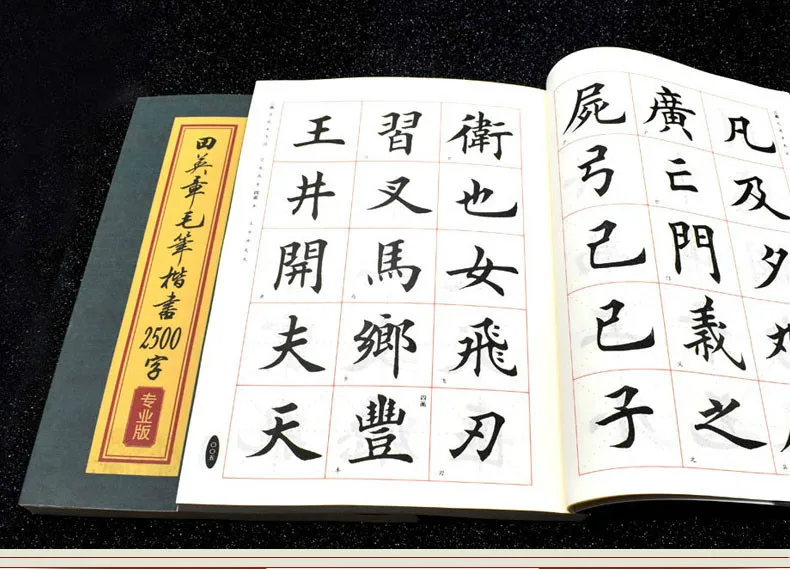 田英章毛筆楷書2500字
专业版
凡及夕
廣亡門義之
屍弓己已子
衛也女飛刃
習叉馬鄉豐
四画
王井開夫天
四画
〇〇五